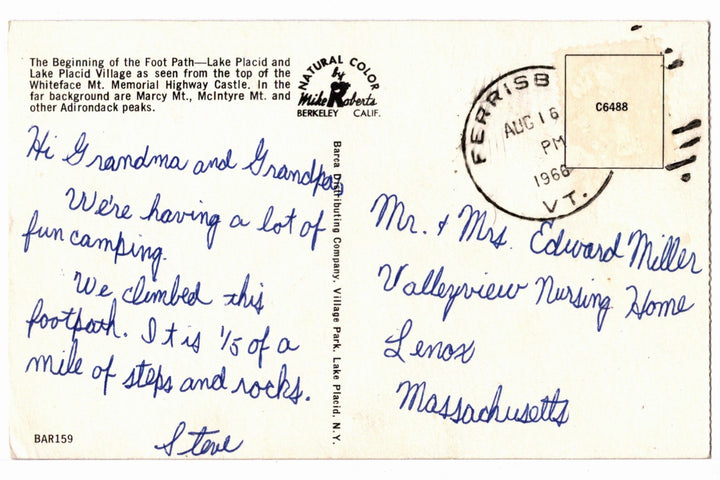 The Beginning of the Foot Path—Lake Placid and
Lake Placid Village as seen from the top of the
Whiteface Mt. Memorial Highway Castle. In the
far background are Marcy Mt., McIntyre Mt. and
other Adirondack peaks.
NATURAL COLOR
by
Mike Roberts
BERKELEY CALIF.
FERRISB
AUG 16
PM
1966
VT.
C6488
Hi Grandma and Grandpa,
We're having a lot of
fun camping.
We climbed this
footpath. It is 1/5 of a
mile of steps and rocks.
Steve
BAR159
Barca Distributing Company, Village Park, Lake Placid, N.Y.
Mr. & Mrs. Edward Miller
Valleyview Nursing Home
Lenox
Massachusetts